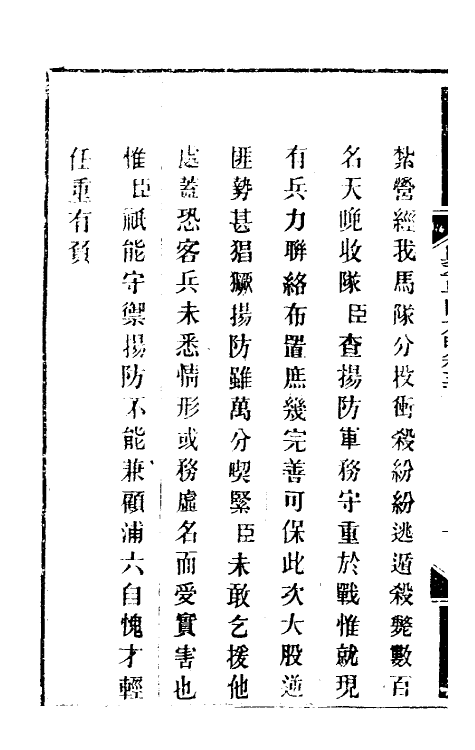 紮營經我馬隊分投衝殺紛紛逃遁殺斃數百
名天晚收隊臣查揚防軍務守重於戰惟就現
有兵力聯絡布置庶幾完善可保此次大股逆
匪勢甚猖獗揚防雖萬分喫緊臣未敢乞援他
處蓋恐客兵未悉情形或務虛名而受實害也
惟臣祇能守禦揚防不能兼顧浦六自愧才輕
任重有負